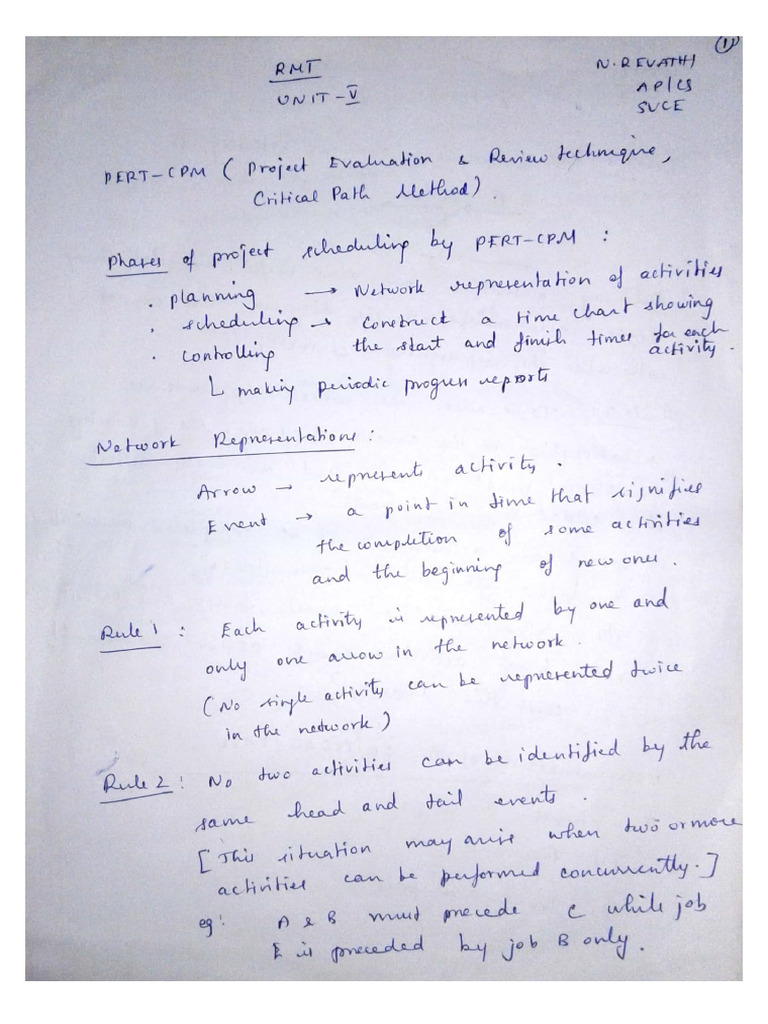 (1)
RMT
UNIT-V
N.REVATHI
AP/CS
SVCE
PERT-CPM ( Project Evaluation & Review technique,
Critical Path Method).
Phases of project scheduling by PERT-CPM :
. planning → Network representation of activities
. scheduling → Construct a time chart showing
. controlling the start and finish times for each activity.
└ making periodic progress reports
Network Representations :
Arrow → represents activity.
Event → a point in time that signifies
the completion of some activities
and the beginning of new ones.
Rule 1 : Each activity is represented by one and
only one arrow in the network.
(No single activity can be represented twice
in the network)
Rule 2 : No two activities can be identified by the
same head and tail events.
[This situation may arise when two or more
activities can be performed concurrently.]
eg: A & B must precede C while job
E is preceded by job B only.